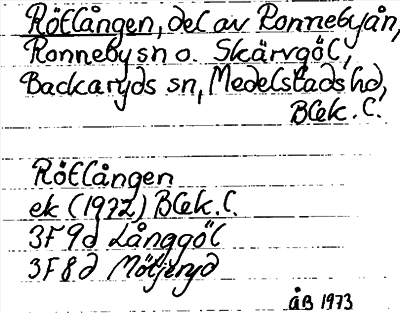 Rötlången, del av Ronnebyån,
Ronneby sn o. Skärvgöl,
Backaryds sn, Medelstads hd,
Blek. l.
Rötlången
ek (1972) Blek. l.
3F 9d Långgöl
3F 8d Mötjeryd
ÅB 1973